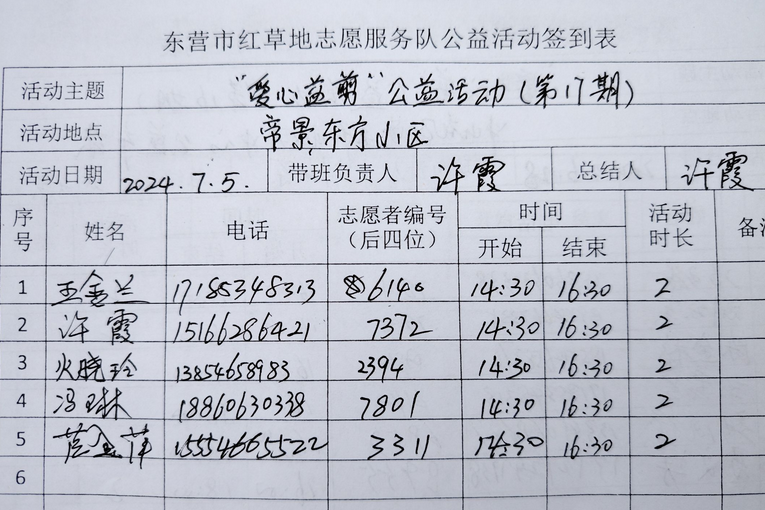 东营市红草地志愿服务队公益活动签到表
活动主题 “爱心益剪”公益活动(第17期)
活动地点 帝景东方小区
活动日期 2024.7.5. 带班负责人 许霞 总结人 许霞
序号 姓名 电话 志愿者编号（后四位） 时间 开始 结束 活动时长 备
1 王金兰 17185348313 6140 14:30 16:30 2
2 许霞 15166286421 7372 14:30 16:30 2
3 火晓玲 13854658983 2394 14:30 16:30 2
4 冯琳 18860630338 7801 14:30 16:30 2
5 萍 15554665522 3311 14:30 16:30 2
6